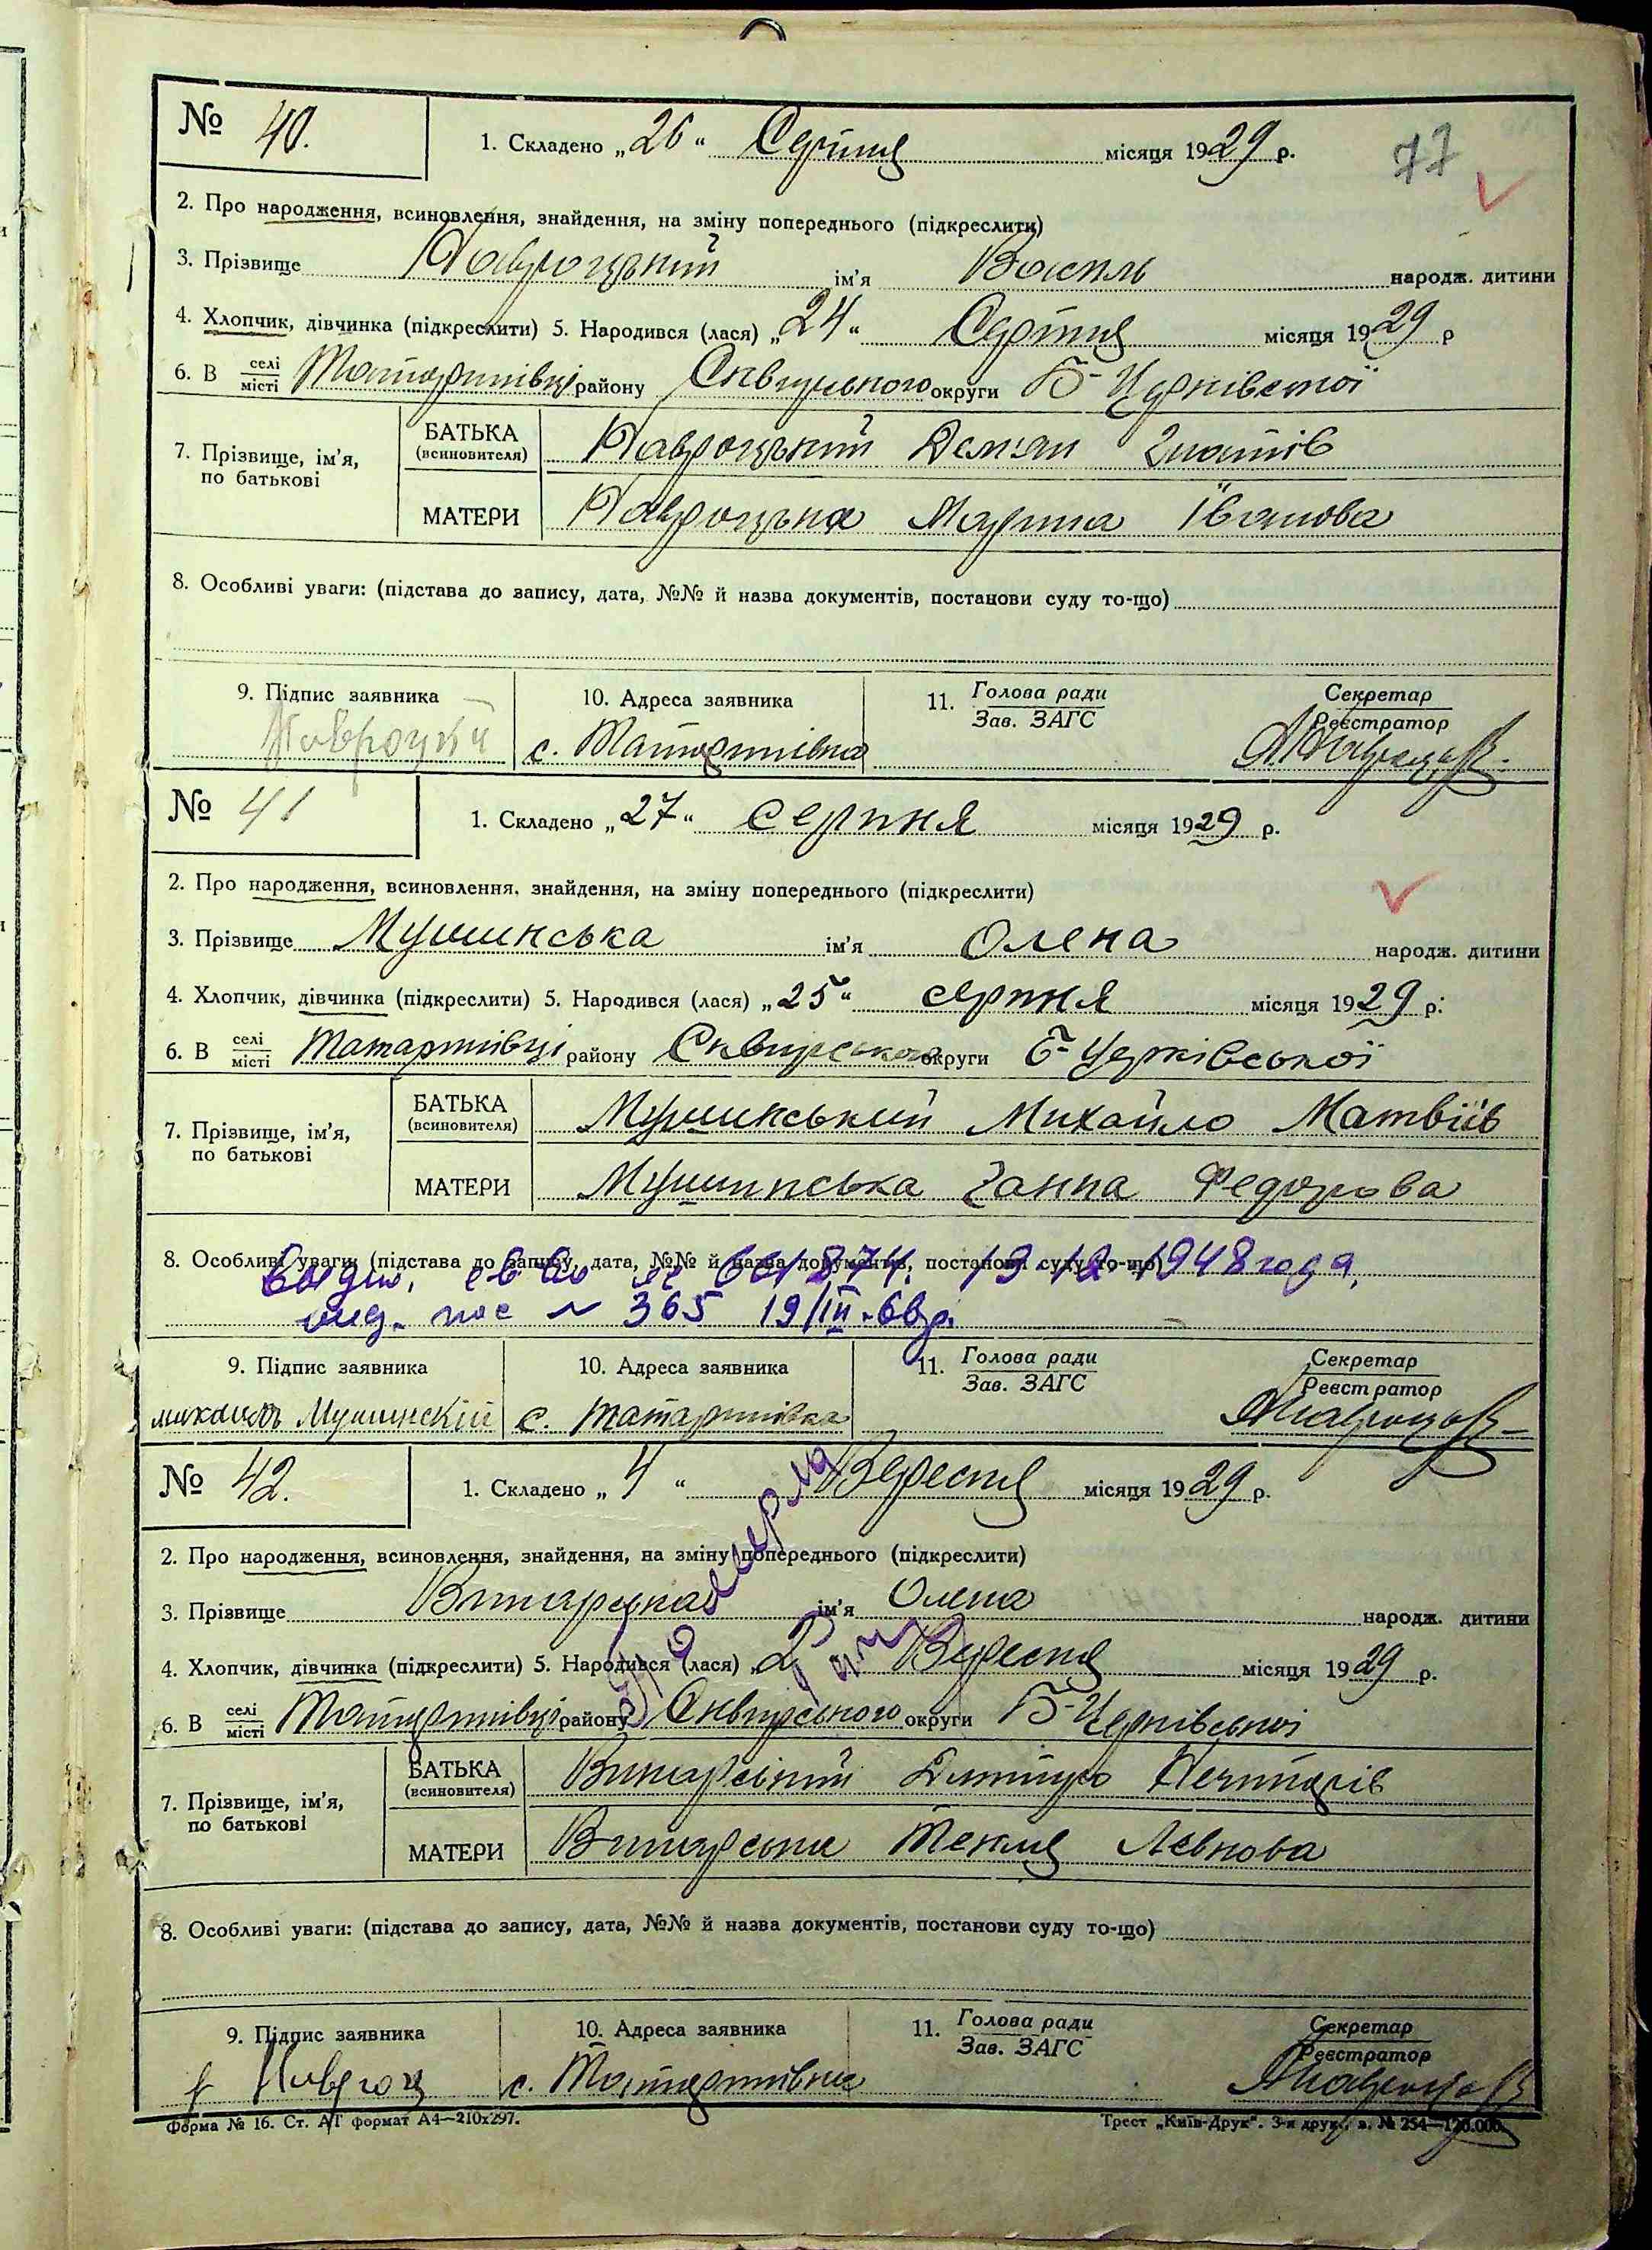 № 40. 1. Складено „26“ Серпня місяця 1929 р. 77
2. Про народження, всиновлення, знайдення, на зміну попереднього (підкреслити)
3. Прізвище Навроцький ім'я Василь народж. дитини
4. Хлопчик, дівчинка (підкреслити) 5. Народився (лася) „24“ Серпня місяця 1929 р
6. В селі місті Татаринівці району Сквирського округи Б-Церківської
7. Прізвище, ім'я, по батькові БАТЬКА (всиновителя) Навроцький Демян Гнатів
МАТЕРИ Навроцька Марина Іванова
8. Особливі уваги: (підстава до запису, дата, №№ й назва документів, постанови суду то-що)
9. Підпис заявника 10. Адреса заявника 11. Голова ради Зав. ЗАГС Секретар Реєстратор
Навроцкий с. Татаринівка
№ 41 1. Складено „27“ серпня місяця 1929 р.
2. Про народження, всиновлення, знайдення, на зміну попереднього (підкреслити)
3. Прізвище Мушинська ім'я Олена народж. дитини
4. Хлопчик, дівчинка (підкреслити) 5. Народився (лася) „25“ серпня місяця 1929 р.
6. В селі місті Татаринівці району Сквирського округи Б-Церківської
7. Прізвище, ім'я, по батькові БАТЬКА (всиновителя) Мушинський Михайло Матвіїв
МАТЕРИ Мушинська Ганна Федорова
8. Особливі уваги: (підстава до запису, дата, №№ й назва документів, постанови суду то-що)
19 12 1948 года,
№ 365 19/III
9. Підпис заявника 10. Адреса заявника 11. Голова ради Зав. ЗАГС Секретар Реєстратор
Мушинскій с. Татаринівка
№ 42. 1. Складено „4“ Вересня місяця 1929 р.
2. Про народження, всиновлення, знайдення, на зміну попереднього (підкреслити)
3. Прізвище Винарська ім'я Олена народж. дитини
4. Хлопчик, дівчинка (підкреслити) 5. Народився (лася) „2“ Вересня місяця 1929 р.
6. В селі місті Татаринівці району Сквирського округи Б-Церківської
7. Прізвище, ім'я, по батькові БАТЬКА (всиновителя) Винарський Дмитро Нечипорів
МАТЕРИ Винарська Текля Левкова
8. Особливі уваги: (підстава до запису, дата, №№ й назва документів, постанови суду то-що)
9. Підпис заявника 10. Адреса заявника 11. Голова ради Зав. ЗАГС Секретар Реєстратор
с. Татаринівка
Форма № 16. Ст. АГ формат А4—210х297. Трест „Київ-Друк“. 3-я друк., з. № 254—120.000.